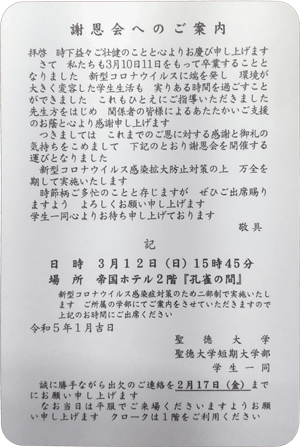 謝恩会へのご案内
拝啓　時下益々ご壮健のことと心よりお慶び申し上げます
さて　私たちも3月10日11日をもって卒業することと
なりました　新型コロナウイルスに端を発し　環境が
大きく変容した学生生活も　実りある時間を過ごすこと
ができました　これもひとえにご指導いただきました
先生方をはじめ　関係者の皆様によるあたたかいご支援
のお蔭と心より感謝申し上げます
つきましては　これまでのご恩に対する感謝と御礼の
気持ちをこめまして　下記のとおり謝恩会を開催する
運びとなりました
新型コロナウイルス感染拡大防止対策の上　万全を
期して実施いたします
時節柄ご多忙のことと存じますが　ぜひご出席賜り
ますよう　よろしくお願い申し上げます
学生一同心よりお待ち申し上げております
敬具
記
日　時　3月12日（日）15時45分
場　所　帝国ホテル2階『孔雀の間』
新型コロナウイルス感染症対策のため二部制で実施いたしま
す　ご所属の学部にてご案内をさせていただきますので
上記のお時間にご出席ください
令和5年1月吉日
聖徳大学
聖徳大学短期大学部
学生一同
誠に勝手ながら出欠のご連絡を2月17日（金）まで
にお願い申し上げます
なお当日は平服でご来場くださいますようお願
い申し上げます　クロークは1階をご利用ください